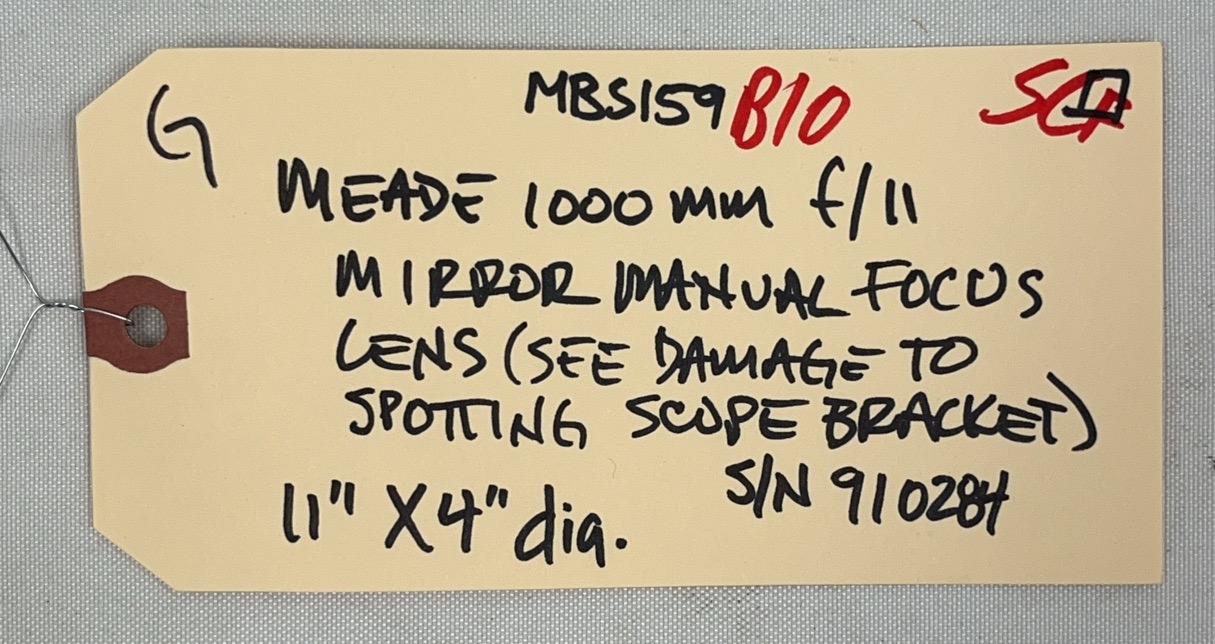 G MBS159 B10
MEADE 1000 mm f/11
MIRROR MANUAL FOCUS
LENS (SEE DAMAGE TO
SPOTTING SCOPE BRACKET)
S/N 910284
11" X 4" dia.